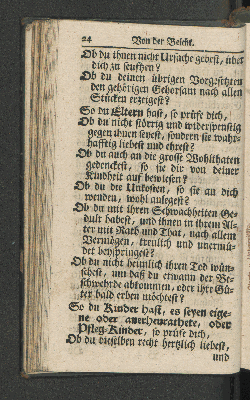 24 Von der Beicht.
Ob du ihnen nicht Ursache gebest, über
dich zu seufftzen?
Ob du deinen übrigen Vorgesetzten
den gehörigen Gehorsam nach allen
Stücken erzeigest?
So du Eltern hast, so prüfe dich,
Ob du nicht störrig und widerspenstig
gegen ihnen seyest, sondern sie wahr-
hafftig liebest und ehrest?
Ob du auch an die grosse Wohlthaten
gedenckest, so sie dir von deiner
Kindheit auf bewiesen?
Ob du die Unkosten, so sie an dich
wenden, wohl anlegest?
Ob du mit ihren Schwachheiten Ge-
dult habest, und ihnen in ihrem Al-
ter mit Rath und That, nach allem
Vermögen, treulich und unermü-
det beyspringest?
Ob du nicht heimlich ihren Tod wün-
schest, um daß du etwann der Be-
schwehrde abkommen, oder ihre Gü-
ter bald erben möchtest?
So du Kinder hast, es seyen eige-
ne oder anerheurathete, oder
Pfleg-Kinder, so prüfe dich,
Ob du dieselben recht hertzlich liebest,
und